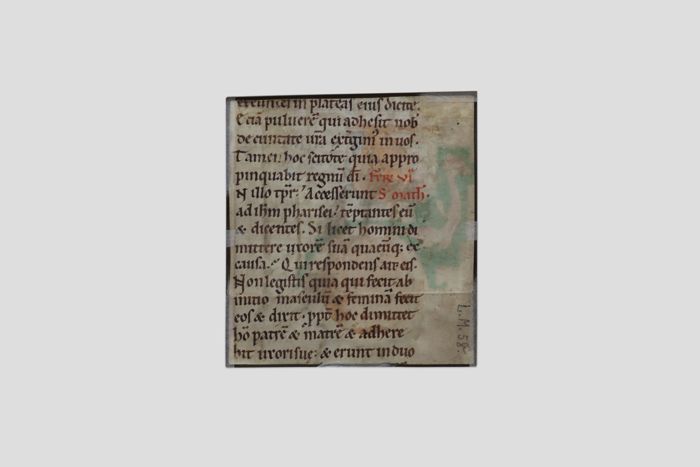 exeuntes in plateas eius dicite.
Etiā puluerē qui adhesit nob
de ciuitate ur̄a extgim᷒ in uos.
Tamen hoc scitote quia appro
pinquabit regnū dī. Ferᷓ vi
N illo tp̄r. Accesserunt S. math.
ad ihm pharisei temptantes eū
& dicentes. Si licet homini di
mittere uxorē suā quacūq; ex
causa. Qui respondens ait eis.
Non legistis quia qui fecit ab
initio masculū & feminā fecit
eos & dixit. ppt̄ hoc dimittet
hō patrē & matrē & adhere
bit uxori suę. & erunt in duo
L.M. 58.